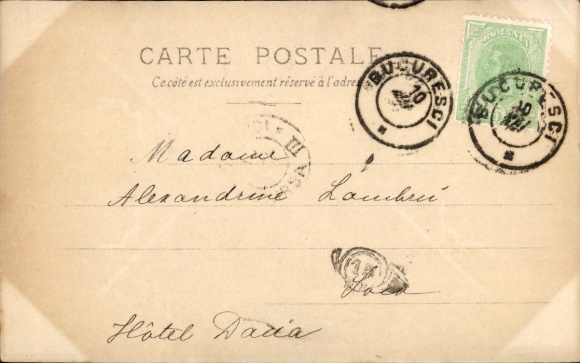 CARTE POSTALE
Ce côté est exclusivement réservé à l'adresse
ROMANIA
BUCURESCI
10
BUCURESCI
10
III
Madame
Alexandrine Lambru
14
Loco
Hôtel Dacia